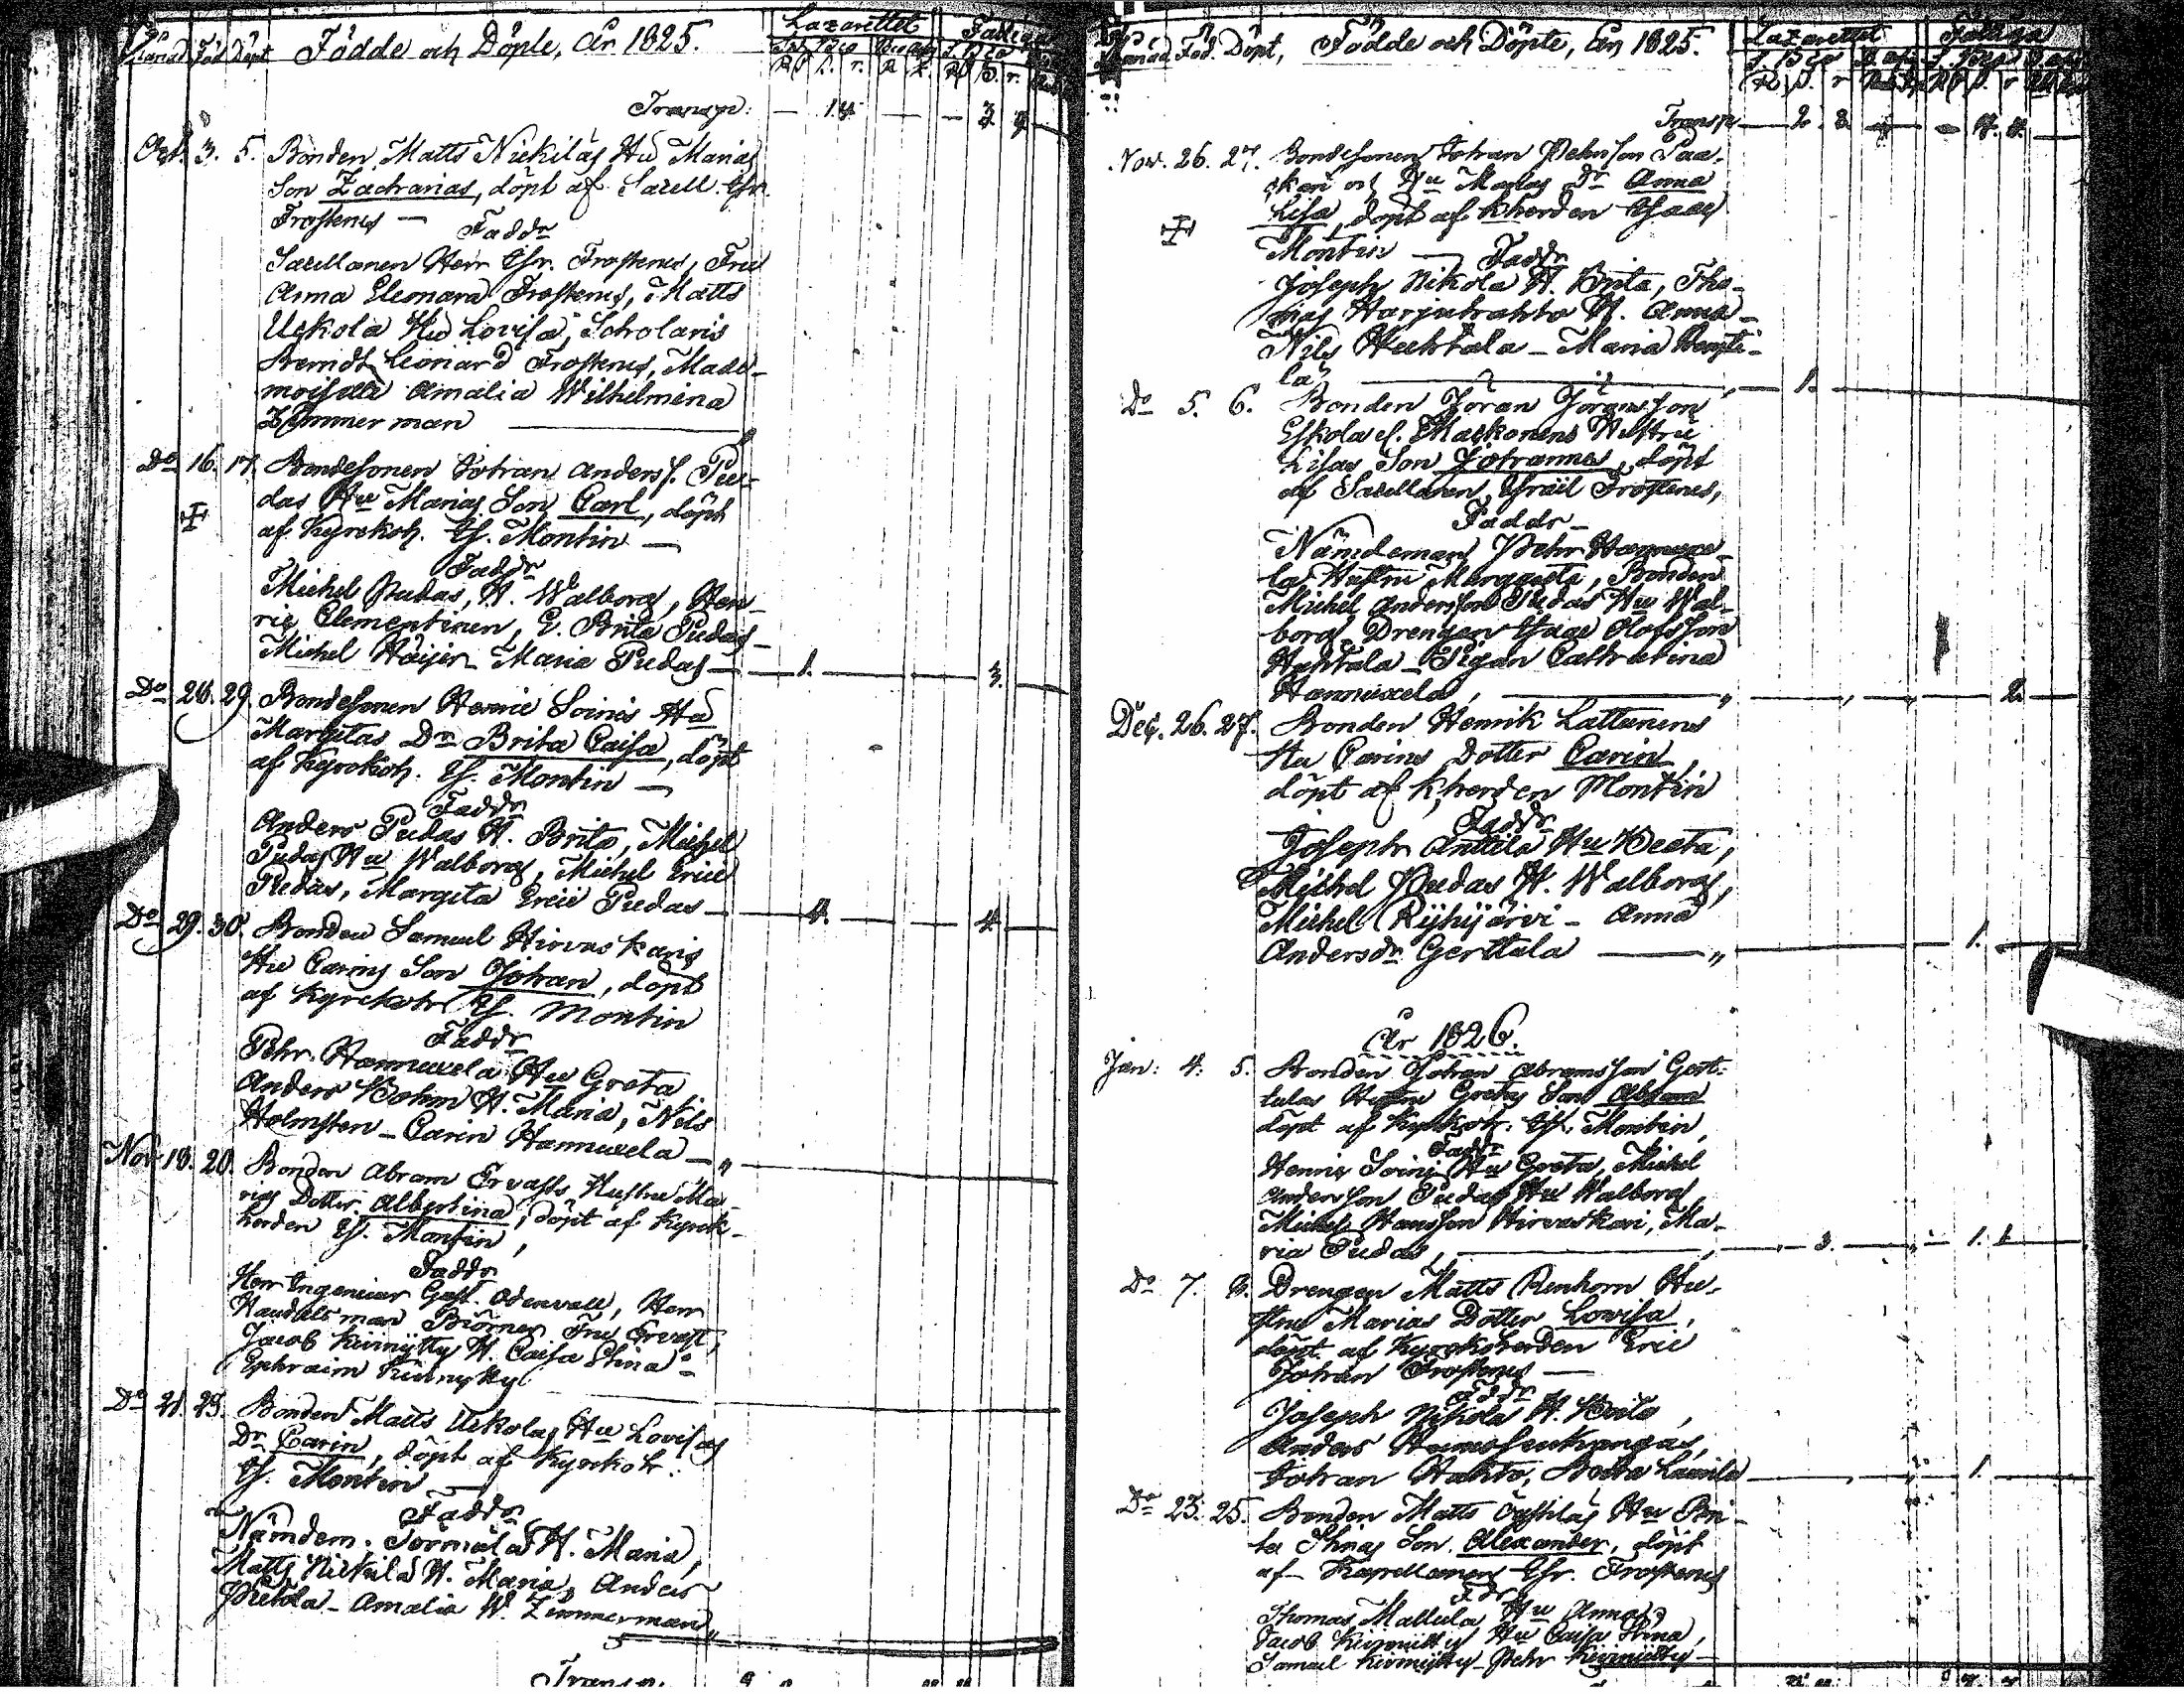 Månad Föd Döpt Födde och Döpte, År 1825. Lazarettet Fattiga
Transp:
Oct. 3. 5. Bonden Matts Niekilas Hu Marias
Son Zacharias, döpt af Sacell. Isr.
Frosterus —
Faddr
Sacellanen Herr Isr. Frosterus, Fru
Anna Eleonara Frosterus, Matts
Uckola Hu Lovisa, Scholaris
Berndt Leonard Frosterus, Made-
moiselle Amalia Wilhelmina
Zimmerman
Do 16. 17. Bondesonen Johan Anders. Pu-
das Hu Marias Son Carl, döpt
af Kyrkoh. Is. Montin —
Faddr
Michel Pudas, H. Walborg, Hen-
ric Clementinen, E. Brita Pudas
Michel Häijer — Maria Pudas — 1. 3.
Do 28. 29. Bondesonen Henric Soinis Hu
Margetas Dr Brita Caisa, döpt
af Kyrkoh. Is. Montin —
Faddr
Anders Pudas H. Brita, Michel
Pudas Hu Walborg, Michel Erici
Pudas, Margeta Erici Pudas — 4. 4.
Do 29. 30. Bonden Samuel Hirvaskaris
Hu Carins Son Johan, döpt
af Kyrckoh. Is. Montin
Faddr
Pehr Hannuxela Hu Greta
Anders Bohm H. Maria, Nils
Holmsten — Carin Hannuxela —
Nov. 18. 20. Bonden Abram Ervasts Hustru Ma-
rias Dotter Albertina, döpt af Kyrck-
herden Is. Montin,
Faddr
Herr Ingenieur Gust. Odenvall, Herr
Handelsman Biörner Fru Ervast,
Jacob Kinnijtty H. Caisa Stina
Ephraim
Do 21. 25. Bonden Matts Uckolas Hu Lovisas
Dr Carin, döpt af Kyrckoh.
Is. Montin
Faddr
Nämdem. Törmälä H. Maria,
Matts Niekilä H. Maria, Anders
Pietola — Amalia W. Zimmerman
Transp.
Månad Föd. Döpt, Födde och Döpte, År 1825. Lazarettet Fattiga
Transp
Nov. 26. 27. Bondesonen Johan Pehrsson Paa-
skari och Hu Marias Dr Anna
Lisa, döpt af Kherden Isaac
Montin — Faddr
Joseph Nikola H. Brita, Tho-
mas Harjutrahto H. Anna —
Nils Huhtala — Maria
la 1.
Do 5. 6. Bonden Jöran Jöransson
Eskola l. Maskonens Hustru
Lisas Son Johannes, döpt
af Sacellanen Israel Frosterus,
Faddr —
Nämdeman Pehr Hannuxe-
la Hustru Margareta, Bonden
Michel Andersson Pudas Hu Wal-
borg. Drengen Isaac Olofsson
Huhtala — Pigan Catharina
Hannuxela, 2.
Dec. 26. 27. Bonden Henrik Lattunens
Hu Carins Dotter Carin,
döpt af Kherden Montin
Faddr
Joseph Anttila Hu Beata,
Michel Pudas H. Walborg,
Michel Rijhijärvi — Anna
Andersdr Gerttula 1.
År 1826.
Jan: 4. 5. Bonden Johan Abramsson Gert-
tulas Hustru Gretas Son Abram
döpt af Kyrkoh. Is. Montin,
Faddr
Henric Soini Hu Greta, Michel
Andersson Pudas Hu Walborg,
Michel Hansson Hirvaskari, Ma-
ria Pudas, 3. 1. 1.
Do 7. 8. Drengen Matts Renhorn Hu-
stru Marias Dotter Lovisa,
döpt af Kyrckoherden Eric
Johan Frosterus —
Faddr
Joseph Nikola H. Brita,
Anders
Johan Hahto, Brita Laurila 1.
Do 23. 25. Bonden Matts Hu Bri-
ta Stinas Son Alexander, döpt
af Kapellanen Isr. Frosterus
Fdr
Thomas Mattula Hu Anna,
Jacob Kinnijtty Hu Caisa Stina,
Samuel Kinnijtty — Pehr Kinnijtty —